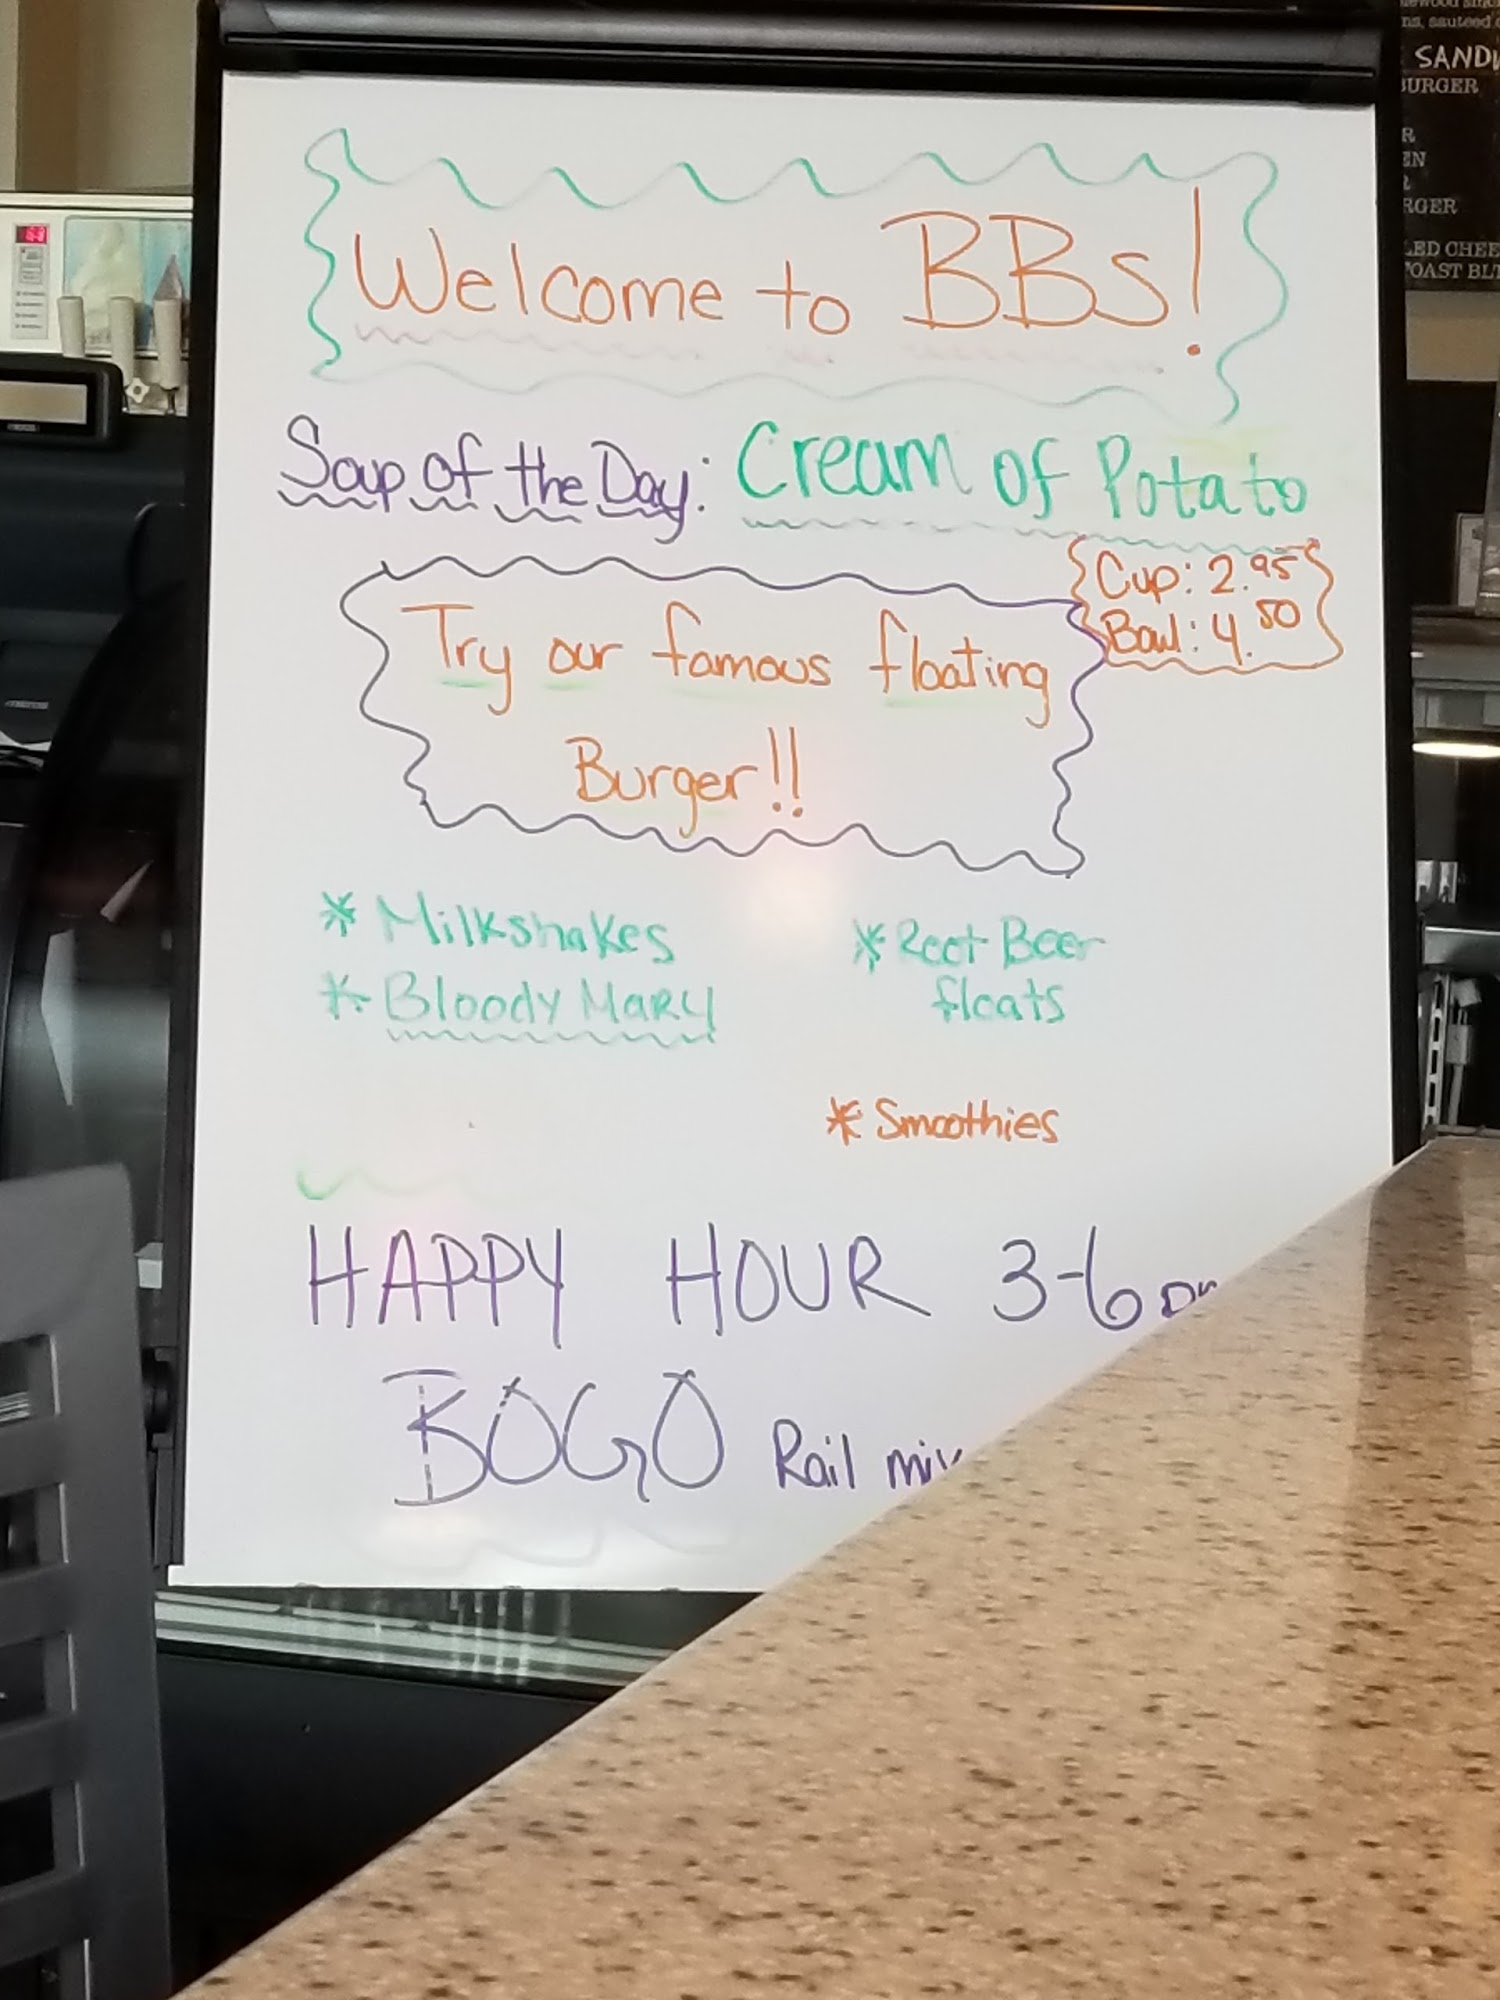 Welcome to BBs!
Soup of the Day: Cream of Potato
Cup: 2.95
Bowl: 4.50
Try our famous floating
Burger!!
* Milkshakes
* Bloody Mary
* Root Beer
floats
* Smoothies
HAPPY HOUR 3-6
BOGO Rail
SAND
BURGER
RGER
LED CHEE
OAST BLT